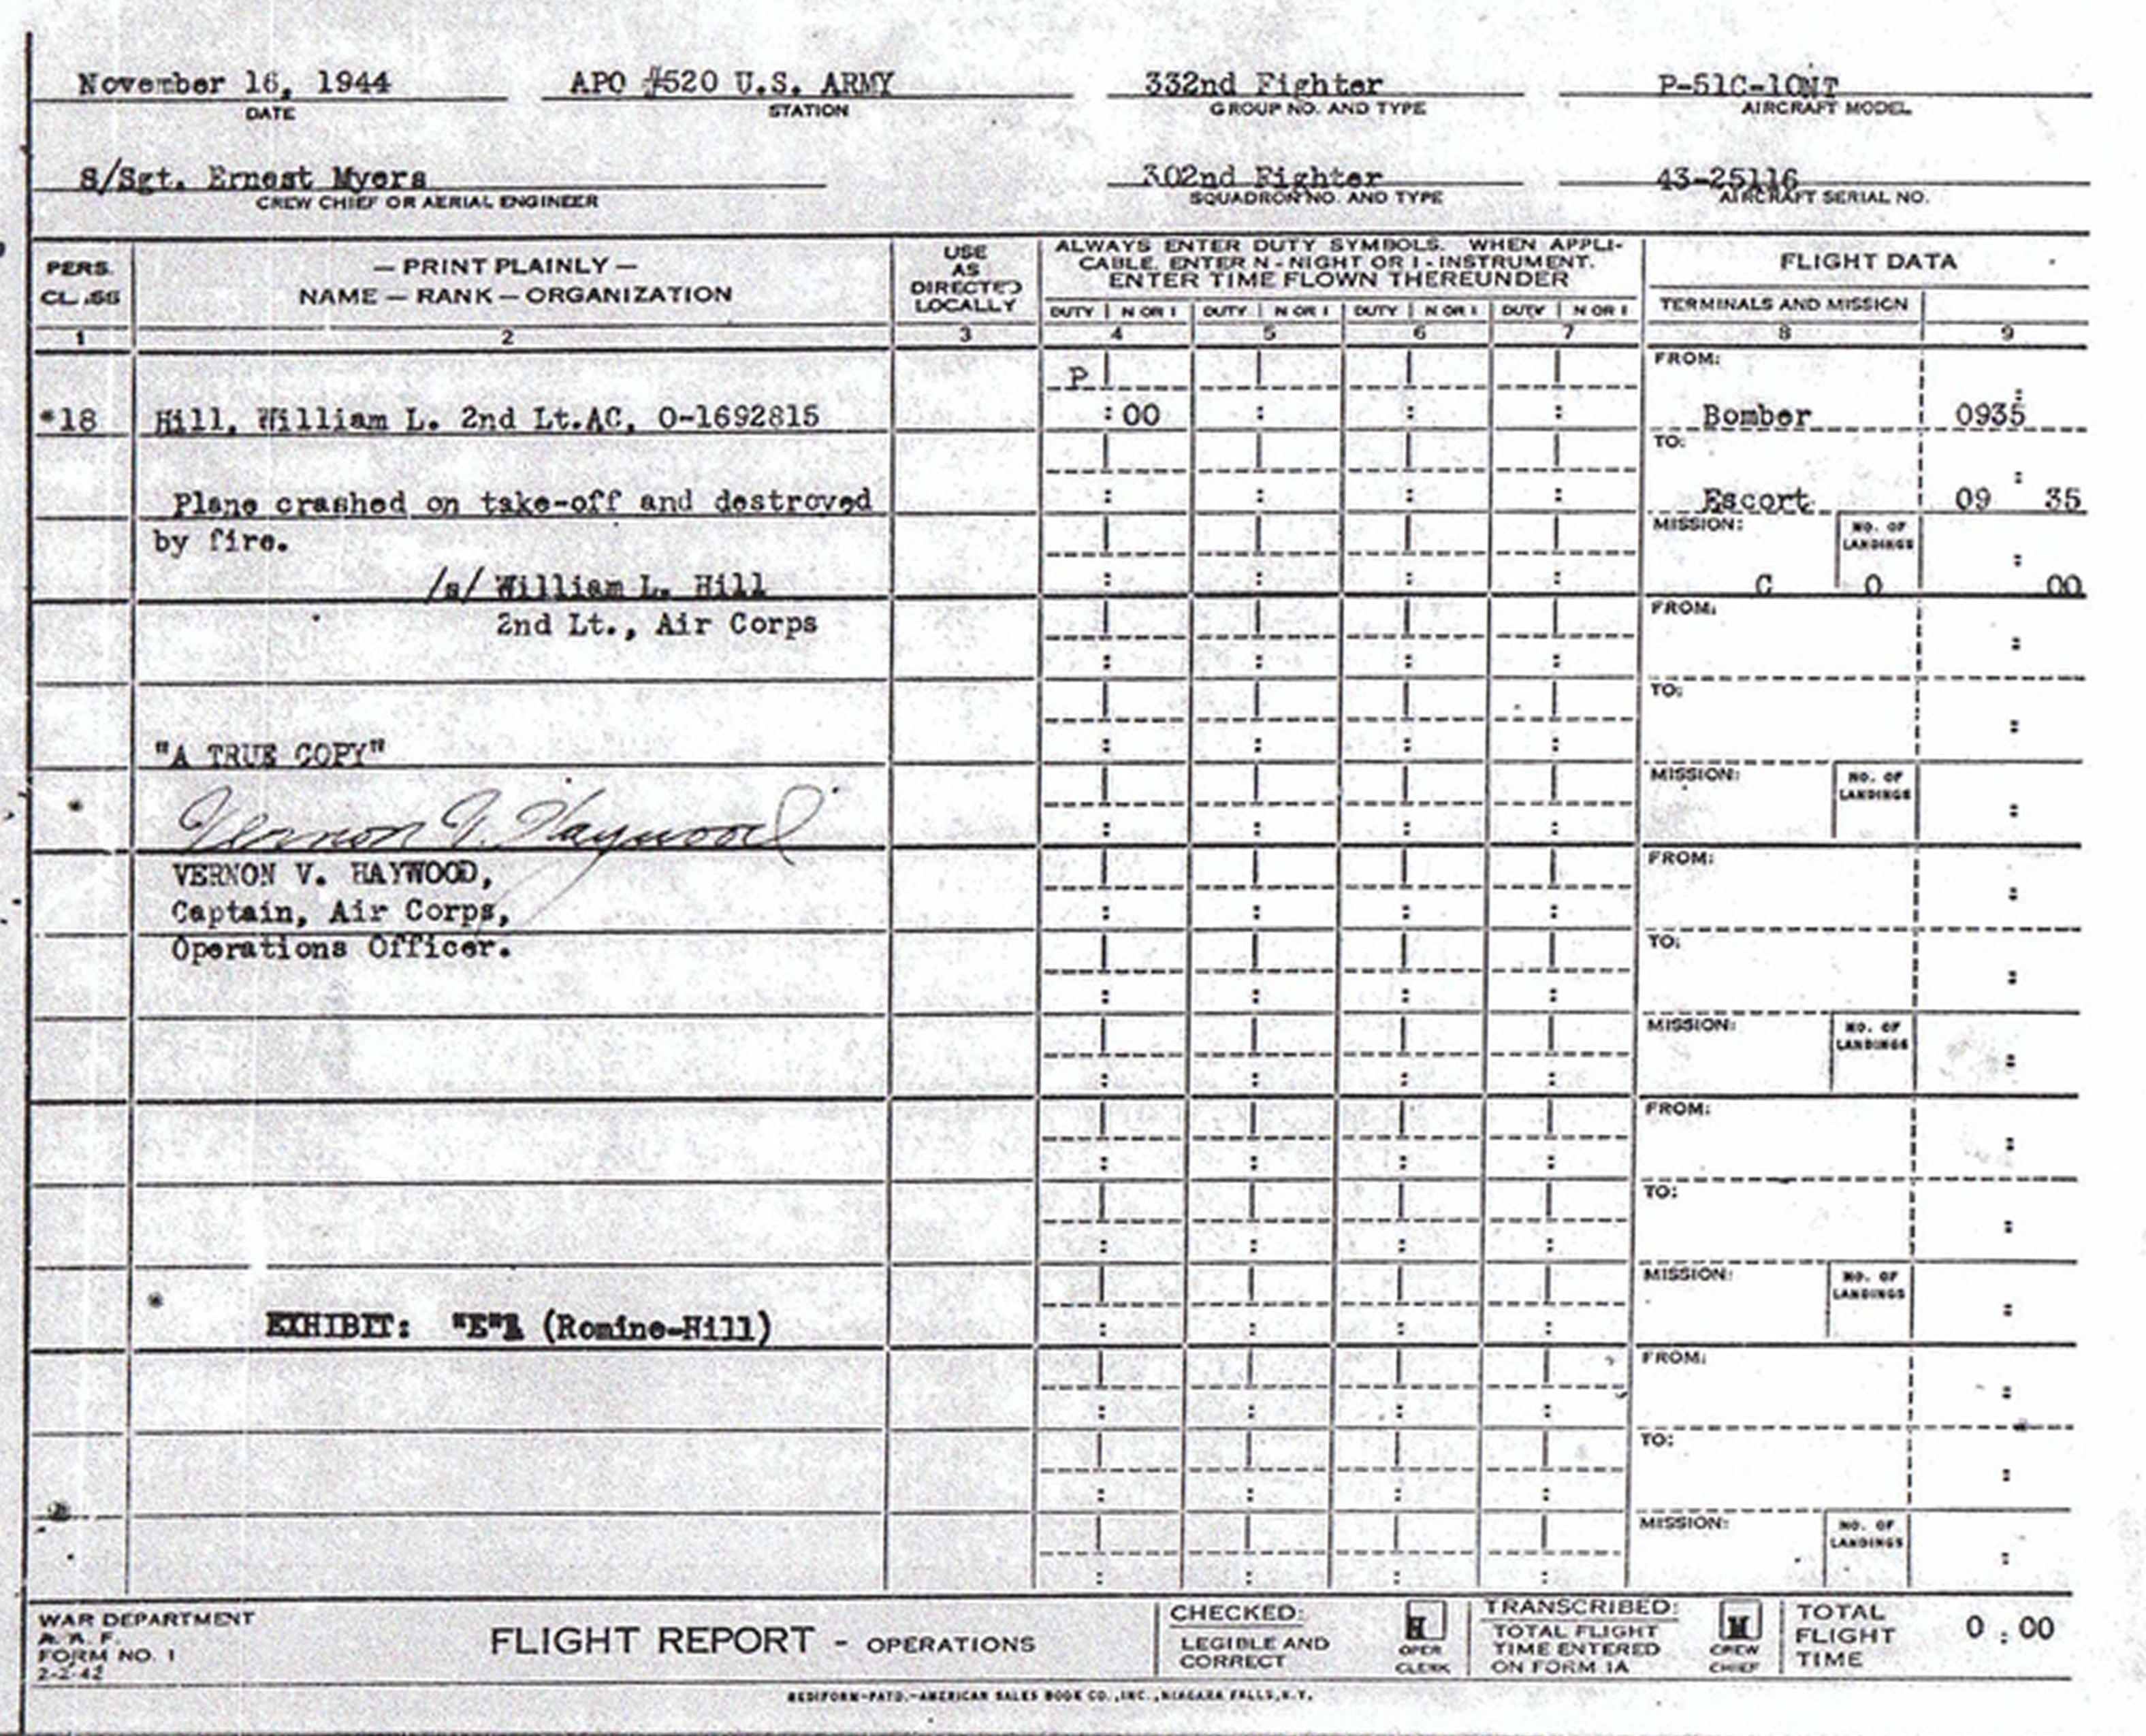 November 16, 1944 APO #520 U.S. ARMY 332nd Fighter P-51C-10NT
DATE STATION GROUP NO. AND TYPE AIRCRAFT MODEL
S/Sgt. Ernest Myers 302nd Fighter 43-25116
CREW CHIEF OR AERIAL ENGINEER SQUADRON NO. AND TYPE AIRCRAFT SERIAL NO.
PERS. CLASS
1
— PRINT PLAINLY —
NAME — RANK — ORGANIZATION
2
USE
AS
DIRECTED
LOCALLY
3
ALWAYS ENTER DUTY SYMBOLS. WHEN APPLI-
CABLE, ENTER N - NIGHT OR I - INSTRUMENT.
ENTER TIME FLOWN THEREUNDER
DUTY N OR I DUTY N OR I DUTY N OR I DUTY N OR I
4 5 6 7
FLIGHT DATA
TERMINALS AND MISSION
8 9
P FROM:
*18 Hill, William L. 2nd Lt.AC, O-1692815 :00 Bomber 0935
TO:
Plane crashed on take-off and destroyed Escort 09 35
by fire. MISSION: NO. OF LANDINGS
/s/ William L. Hill C 0 00
2nd Lt., Air Corps FROM:
TO:
"A TRUE COPY"
MISSION: NO. OF LANDINGS
Vernon V. Haywood
VERNON V. HAYWOOD, FROM:
Captain, Air Corps,
Operations Officer. TO:
MISSION: NO. OF LANDINGS
FROM:
TO:
MISSION: NO. OF LANDINGS
EXHIBIT: "E" (Romine-Hill)
FROM:
TO:
MISSION: NO. OF LANDINGS
WAR DEPARTMENT
A. A. F.
FORM NO. 1
2-2-42
FLIGHT REPORT - OPERATIONS
CHECKED:
LEGIBLE AND
CORRECT
OPER
CLERK
TRANSCRIBED:
TOTAL FLIGHT
TIME ENTERED
ON FORM 1A
M
CREW
CHIEF
TOTAL
FLIGHT
TIME
0 : 00
REDIFORM-PATD.-AMERICAN SALES BOOK CO., INC., NIAGARA FALLS, N.Y.